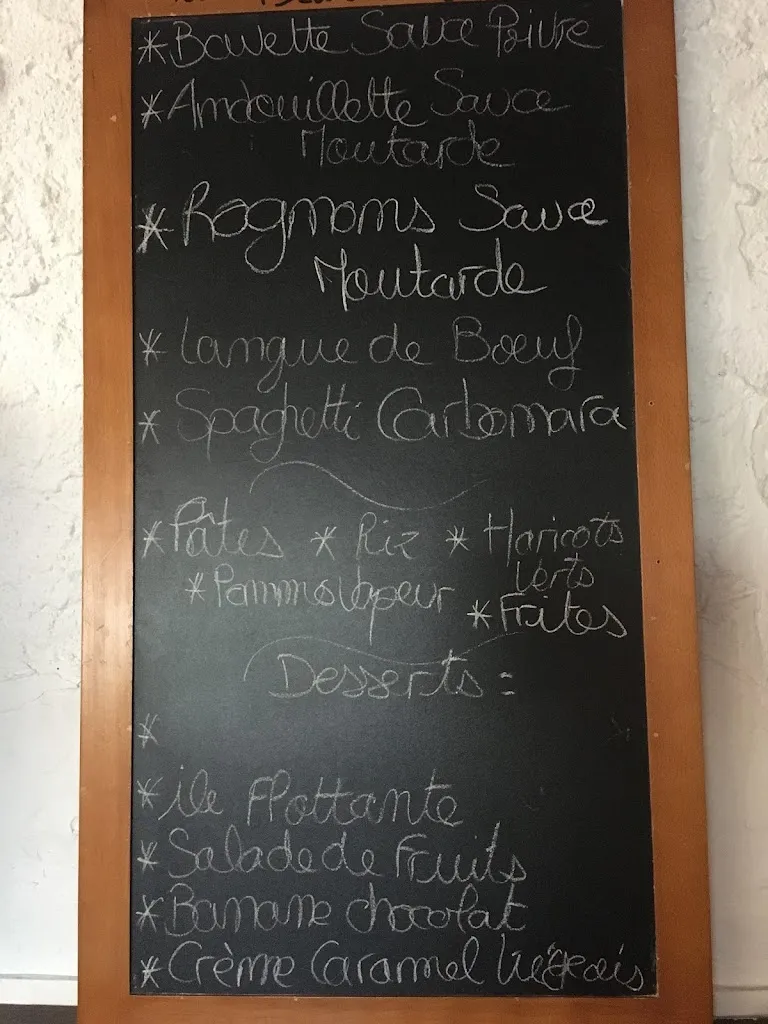 * Bavette Sauce Poivre
* Andouillette Sauce
Moutarde
* Rognons Sauce
Moutarde
* Langue de Boeuf
* Spaghetti Carbonara
* Pâtes * Riz * Haricots
Verts
* Pommes Vapeur
* Frites
Desserts =
*
* île Flottante
* Salade de Fruits
* Banane chocolat
* Crème Caramel Liégeois